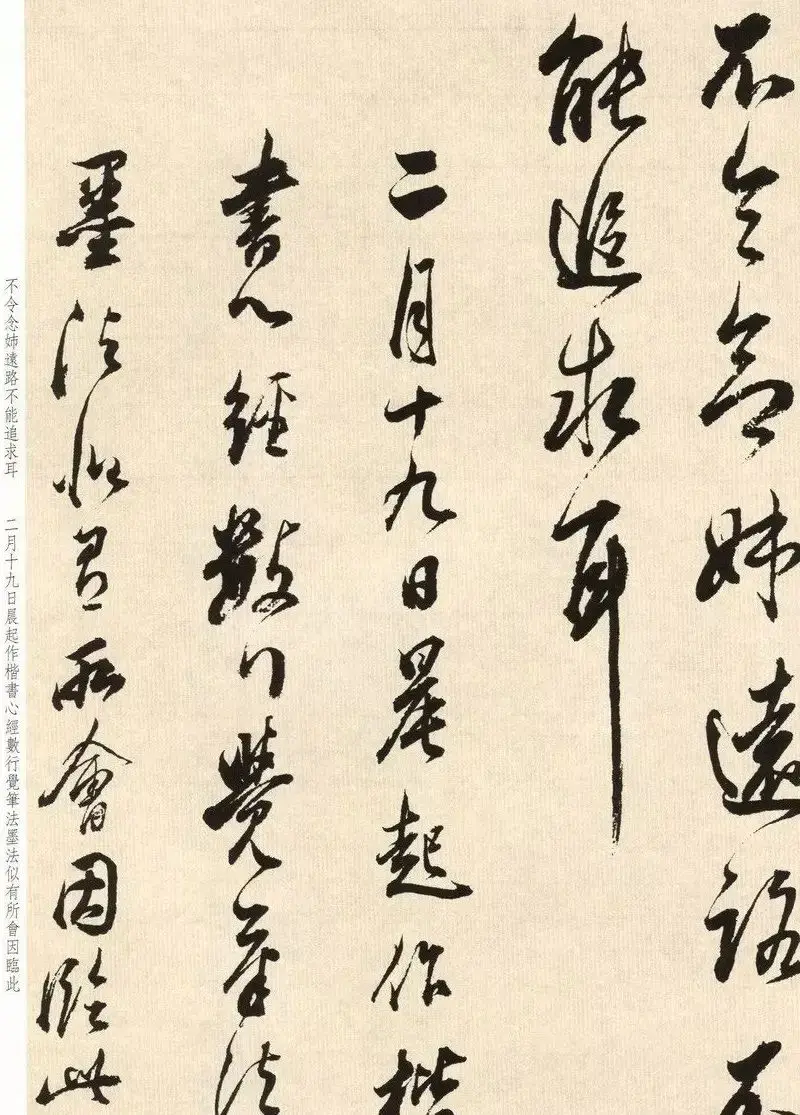 不令念姊遠路不
能追求耳
二月十九日晨起作楷
書心經數行覺筆法
墨法似有所會因臨此
不令念姊遠路不能追求耳　二月十九日晨起作楷書心經數行覺筆法墨法似有所會因臨此